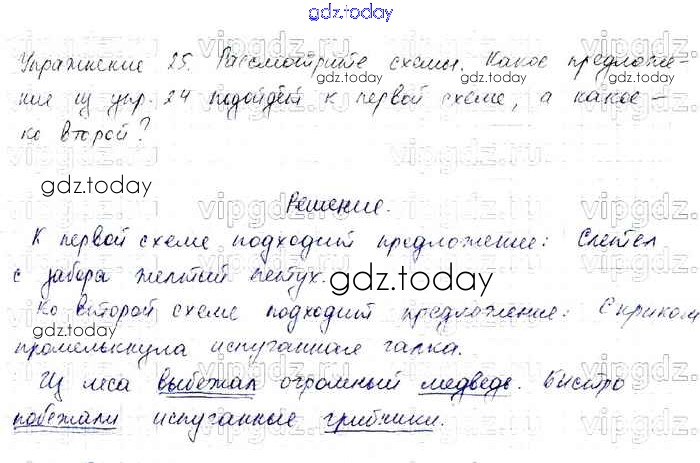 gdz.today
Упражнение 25. Рассмотрите схемы. Какое предложе-
ние из упр. 24 подойдёт к первой схеме, а какое -
ко второй?
gdz.today gdz.today
gdz.today
Решение.
К первой схеме подходит предложение: Слетел
с забора желтый петух.
gdz.today
Ко второй схеме подходит предложение: С криком
gdz.today gdz.today
промелькнула испуганная галка.
Из леса выбежал огромный медведь. Быстро
побежали испуганные грибники.